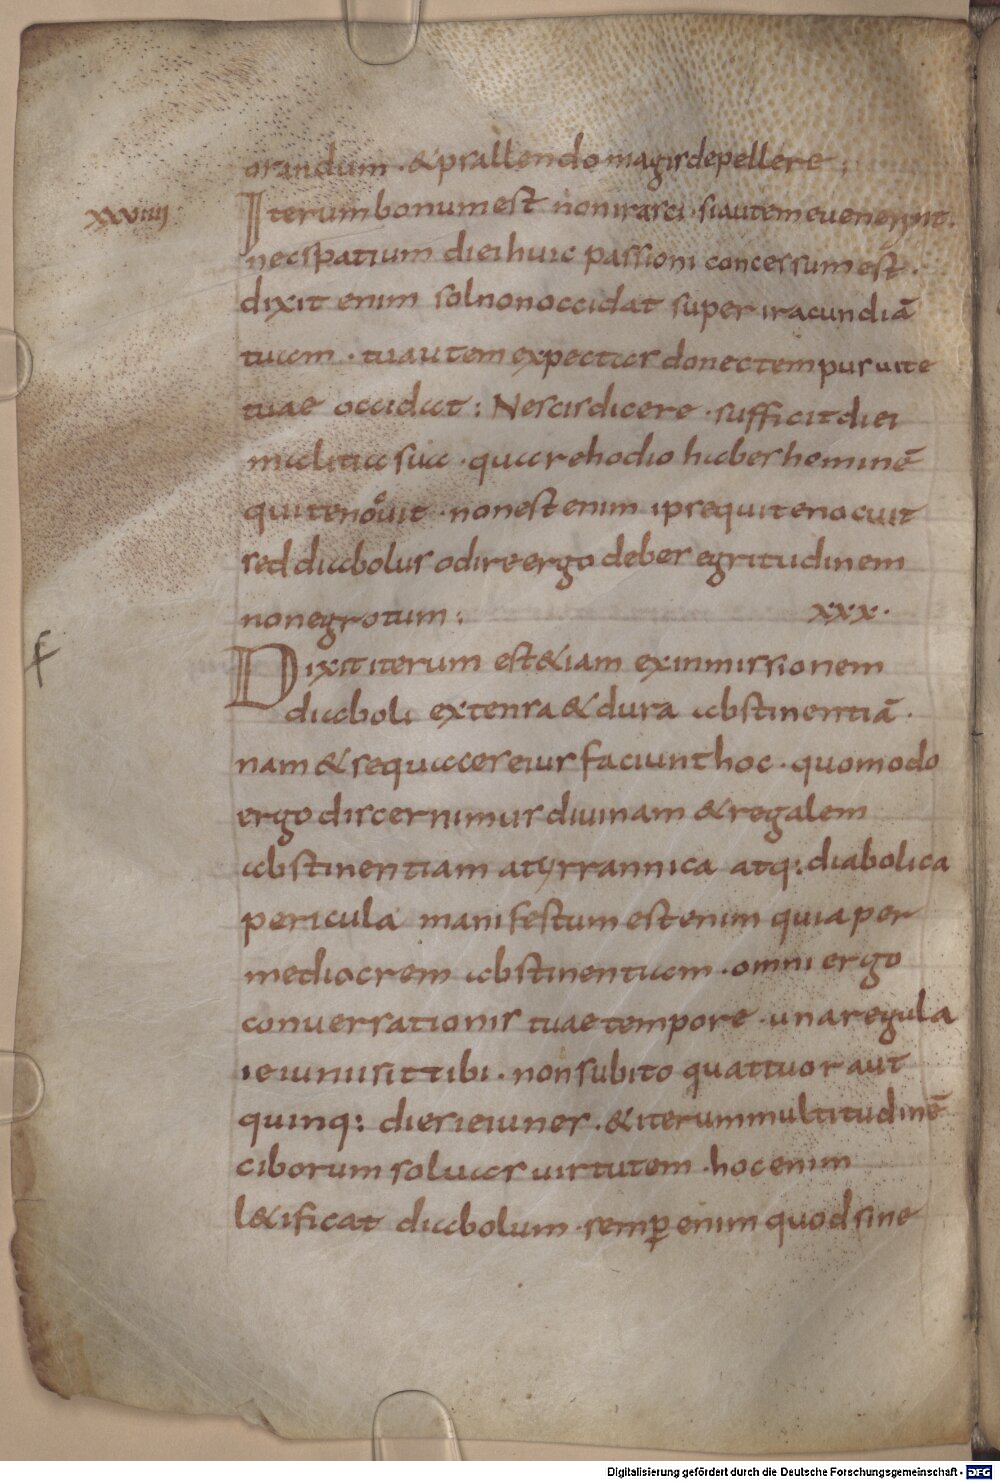 orandum · & psallendo magis depellere ;
xxviiii
Iterum bonum est non irasci · si autem euenerint ·
nec spatium diei huic passioni concessum est ·
dixit enim sol non occidat super iracundiā
tuam · tu autem expectas donec tempus uite
tuae occidat : Nescis dicere · sufficit diei
malitia sua · quare hodio habes hominē
qui te nouit · non est enim ipse qui te nocuit
sed diabolus odire ergo debes egritudinem
non egrotum : xxx ·
Dixit iterum est &iam ex inmissionem
diaboli extensa & dura abstinentiā ·
nam & sequaces eius faciunt hoc · quomodo
ergo discernimus diuinam & regalem
abstinentiam a tyrrannica atq: diabolica
pericula manifestum est enim quia per
mediocrem abstinentiam · omni ergo
conuersationis tuae tempore · una regula
ieiunii sit tibi · non subito quattuor aut
quinq: dies ieiunes · & iterum multitudinē
ciborum soluas uirtutem · hoc enim
l&ificat diabolum · semꝑ enim quod sine
Digitalisierung gefördert durch die Deutsche Forschungsgemeinschaft - DFG